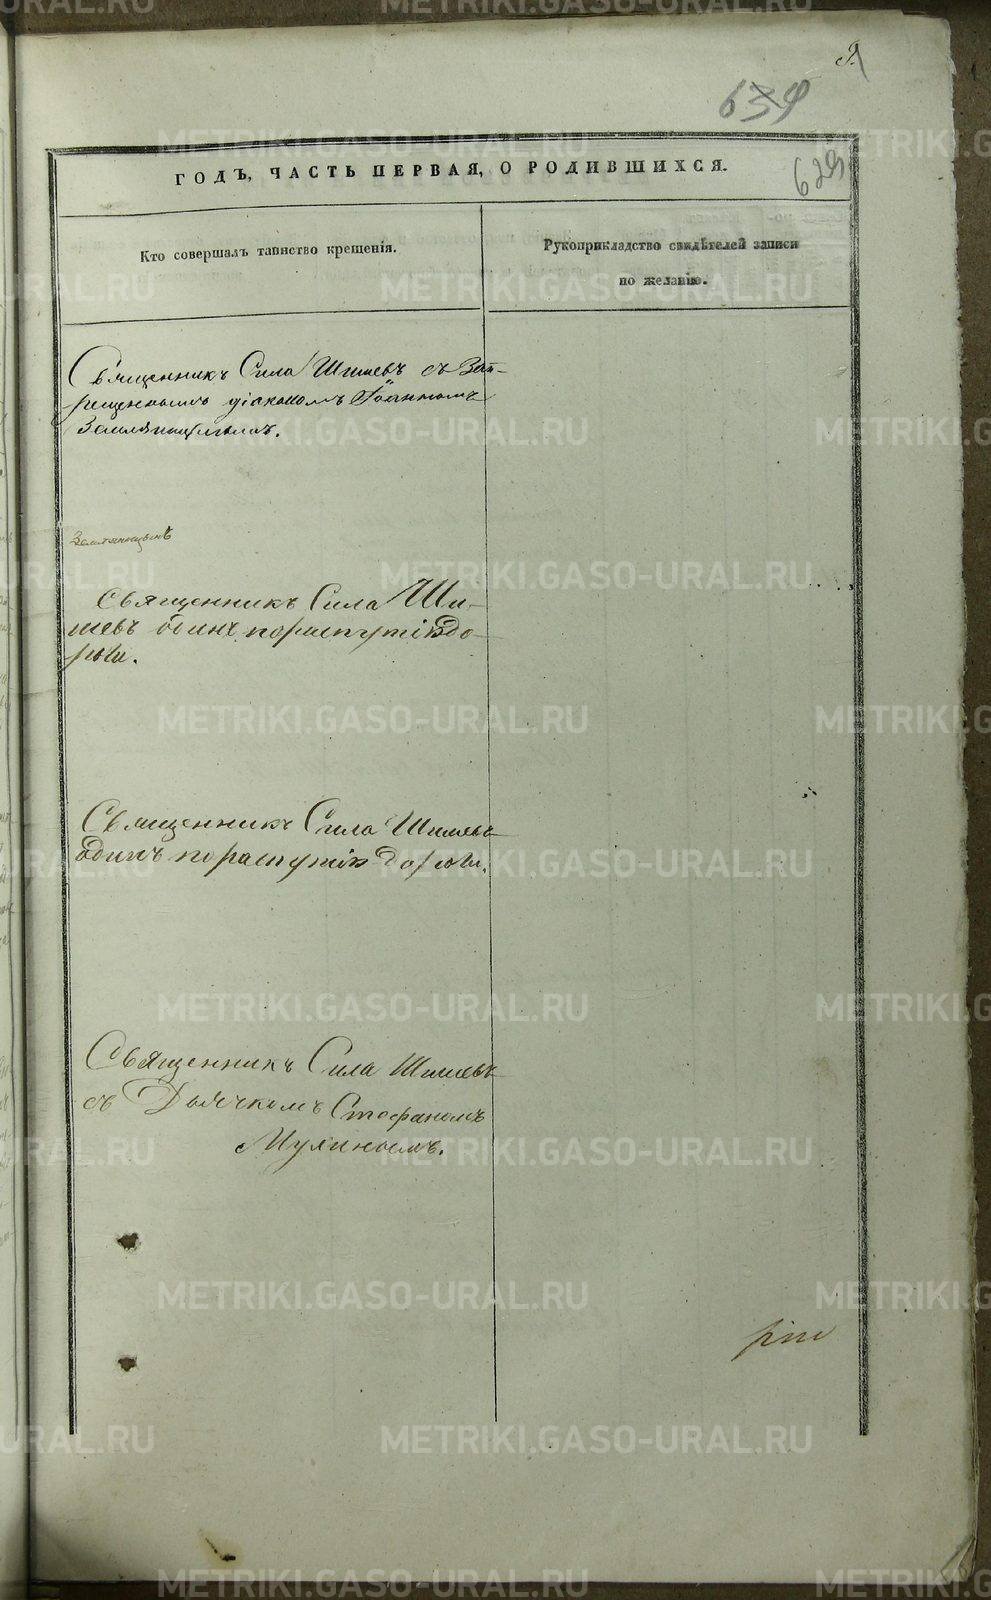 9
639
629
ГОДЪ, ЧАСТЬ ПЕРВАЯ, О РОДИВШИХСЯ.
Кто совершалъ таинство крещенія.
Рукоприкладство свидѣтелей записи
по желанію.
Священникъ Сила Шишевъ съ Зап-
рещеннымъ діакономъ Іоанномъ
Земляницынымъ.
Земляницынъ
Священникъ Сила Ши-
шевъ одинъ по распутію до-
роги.
Священникъ Сила Шишевъ
одинъ по распутію дороги.
Священникъ Сила Шишевъ
съ Дьячкомъ Стефаномъ
Мулинымъ.
METRIKI.GASO-URAL.RU